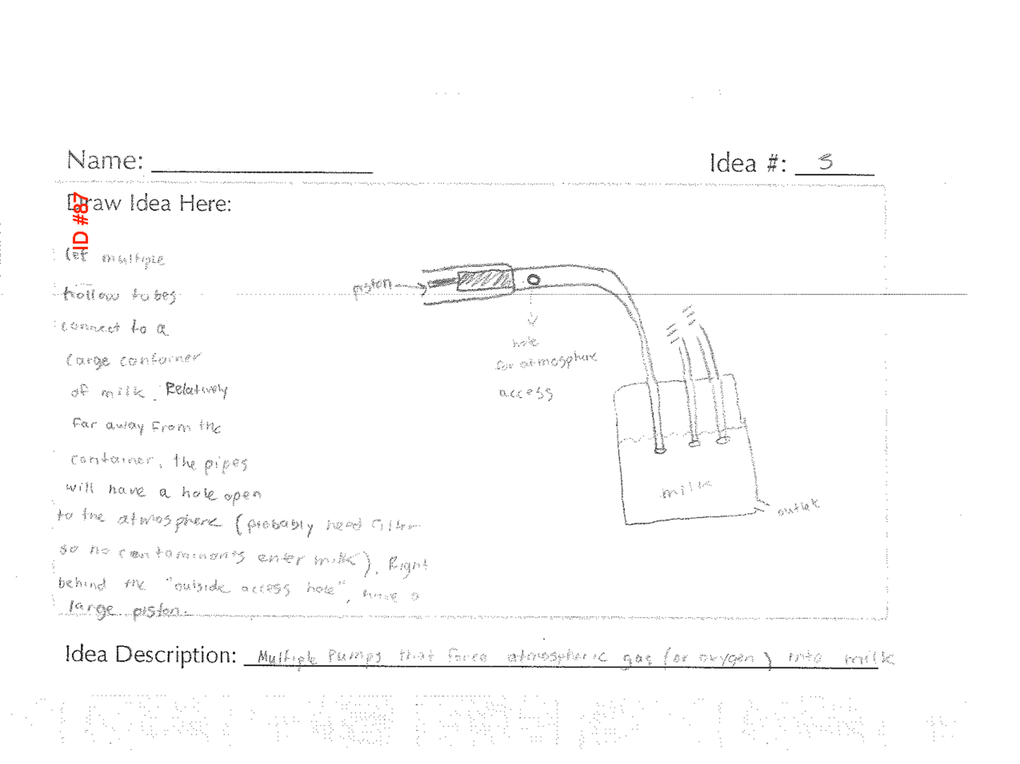 Name:
Idea #: 3
ID #87
Draw Idea Here:
Let multiple
hollow tubes
connect to a
large container
of milk. Relatively
far away from the
container, the pipes
will have a hole open
to the atmosphere (probably need filter
so no contaminants enter milk). Right
behind the "outside access hole", have a
large piston.
piston
hole
for atmosphere
access
milk
outlet
Idea Description: Multiple Pumps that force atmospheric gas (or oxygen) into milk